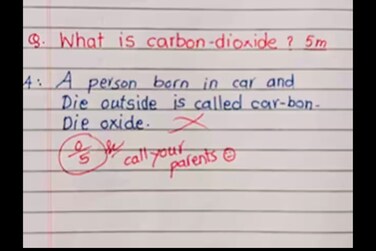 Q. What is carbon-dioxide ? 5m
A: A person born in car and
Die outside is called car-bon-
Die oxide.
0/5 call your
parents ☹